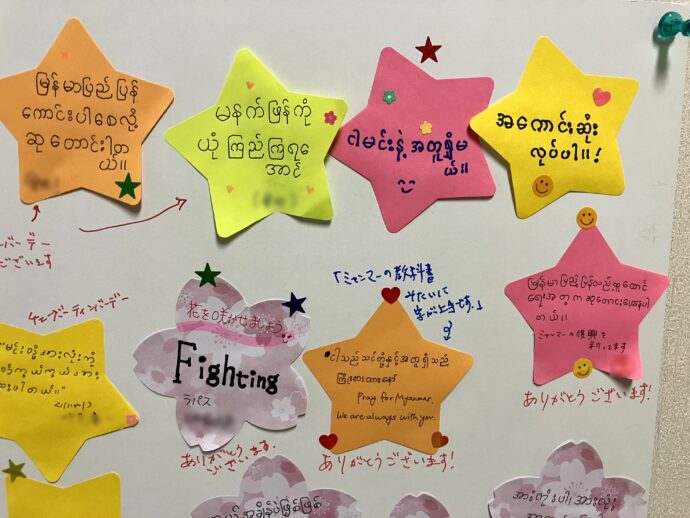 မြန်မာပြည် ပြန်
ကောင်းပါစေလို့
ဆု တောင်းပါတ
ယ်။
မနက်ဖြန်ကို
ယုံ ကြည် ကြရ
အောင်
ငါမင်းနဲ့ အတူရှိမ
ယ်။
အကောင်းဆုံး
လုပ်ပါ။!
ーバーデー
ございます
チェーズーティンバーデー
花を咲かせましょう
Fighting
ラパス
ありがとう
ございます。
「ミャンマーの教科書
みたいに
字が上手です。」
ငါသည် သင်တို့နှင့်အတူရှိသည်
ကြိုးစားထားနော်
Pray for Myanmar.
We are always with you.
ありがとうございます!
မြန်မာပြည်ပြန်လည်ထူထောင်
ရေးအတွက် ဆုတောင်းပေးနေပါ
တယ်။
ミャンマーの復興を
祈ってます
ありがとうございます!